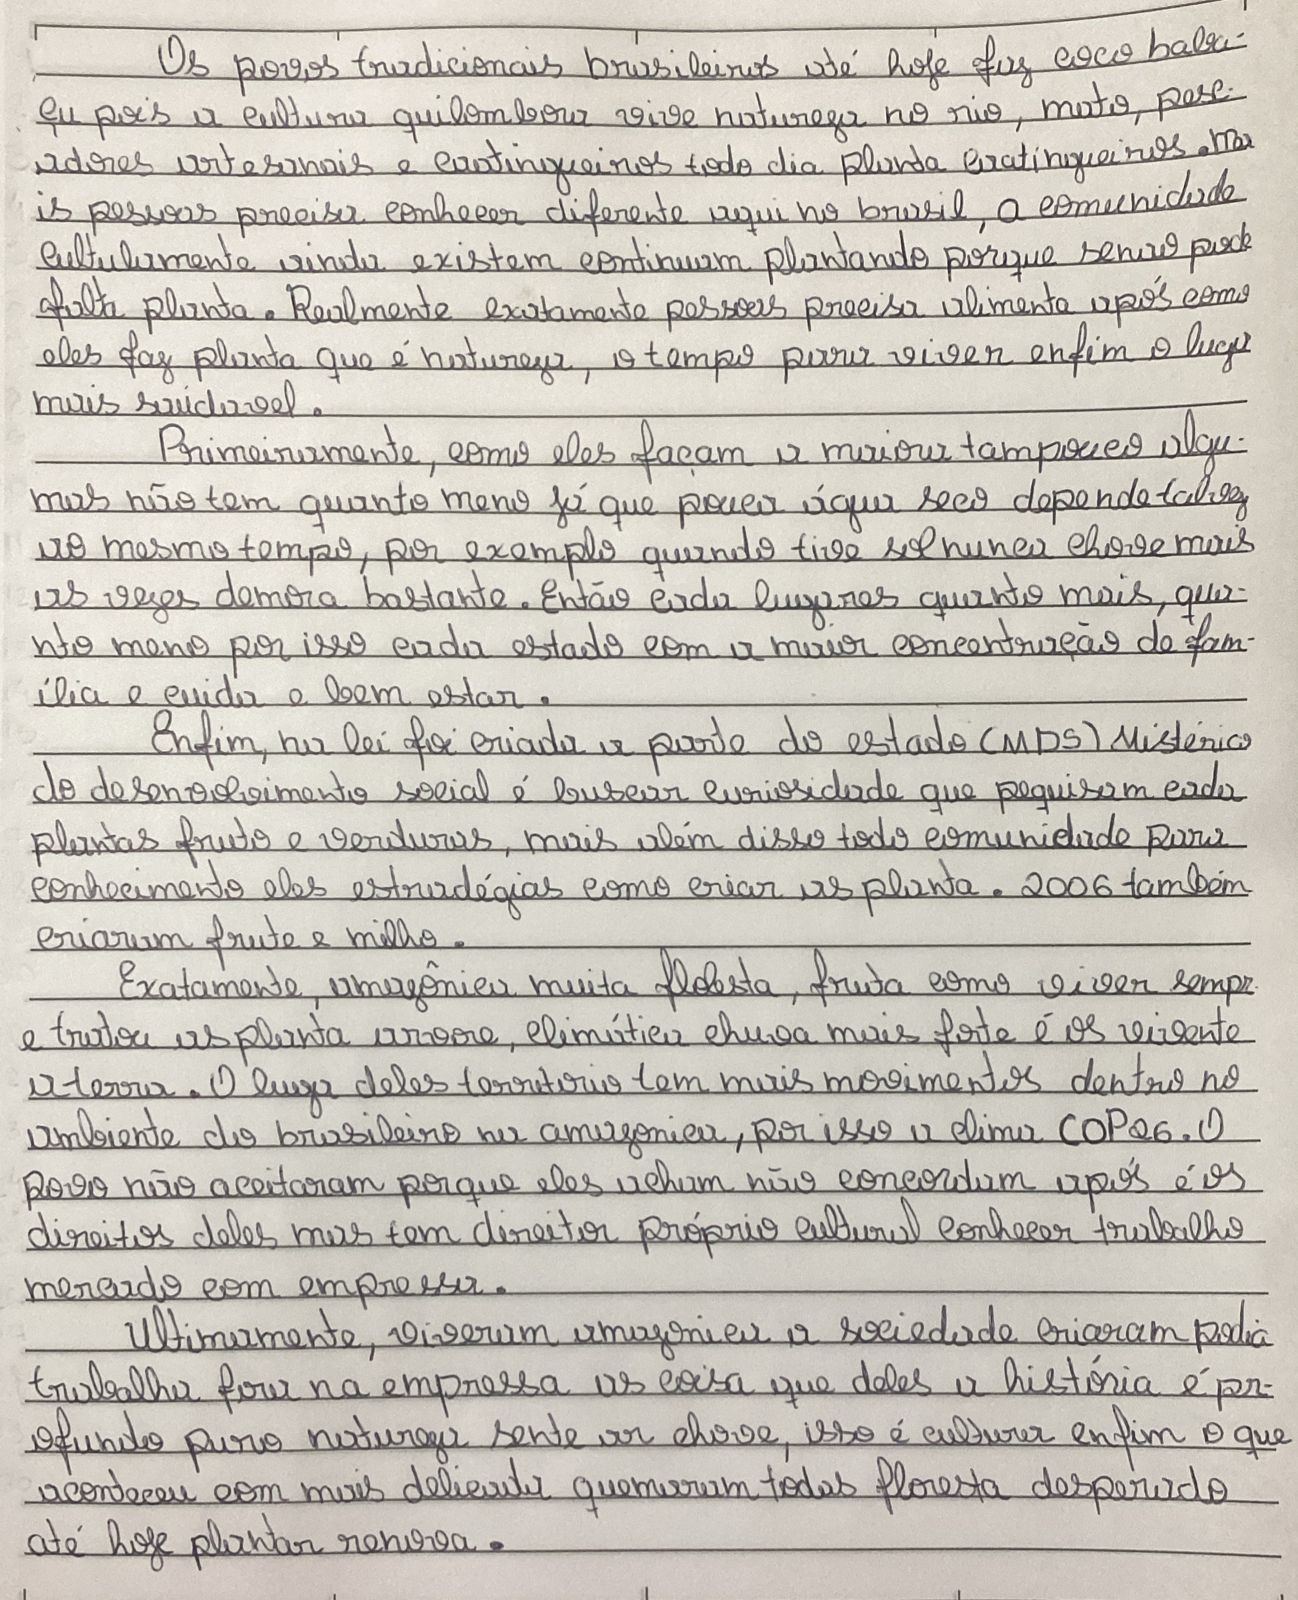 Os povos tradicionais brasileiros até hoje faz coco baba-
çu pois a cultura quilombora vive natureza no rio, mato, pesc-
adores artesanais e caatingueiros todo dia planta caatingueiros. Ma
is pessoas precisa conhecer diferente aqui no brasil, a comunidade
cultulamente ainda existem continuam plantando porque senão pode
falta planta. Realmente exatamente pessoas precisa alimenta após como
eles faz planta que é natureza, o tempo para viver enfim o lugar
mais saúdavel.
Primeiramente, como eles façam a maioria tampouco algu-
mas não tem quanto meno já que pouca água seco depende talvez
ao mesmo tempo, por exemplo quando tive sol nunca chove mais
as vezes demora bastante. Então cada lugares quanto mais, qua-
nto meno por isso cada estado com a maior concentração de fam-
ília e cuida e bem estar.
Enfim, na lei foi criada a parte do estado (MDS) Mistérico
do desenvolvimento social é buscar curiosidade que pequisam cada
plantas fruto e verduras, mais além disso todo comunidade para
conhecimento eles estradégias como criar as planta. 2006 também
criaram fruto e milho.
Exatamente, amazônica muita flolesta, fruta como viver sempr
e tratou as planta arvore, climática chuva mais forte é os
a terra. O luga deles territorio tem mais movimentos dentro no
ambiente do brasileiro na amazonica, por isso a clima COP26. O
povo não aceitaram porque eles acham não concordam após é os
direitos deles mas tem direitor próprio cultural conhecer trabalho
mercado com empressa.
Ultimamente, viveram amazonica a sociedade criaram podia
trabalha fora na empressa as coisa que deles a história é pr-
ofundo puro natureza sente ar chove, isso é cultura enfim o que
aconteceu com mais delicada quemaram todas floresta desparado
até hoje plantar renova.